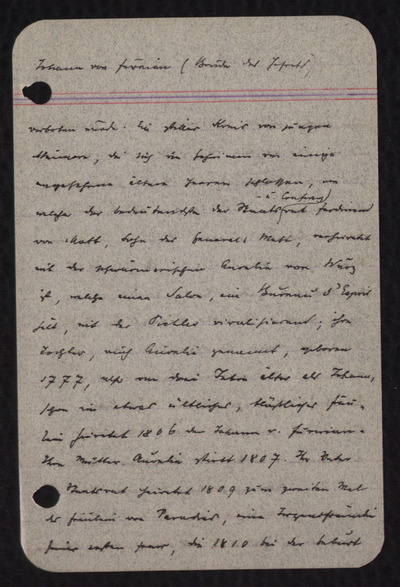 Johann von Fürnian (Bruder des Josephs)
verboten wurde. Ein stiller Kreis von jungen
Männern, die sich im Geheimen um einige
angesehene ältere Herren schlossen, von
welche der bedeutendste der Staats- u. Conferenzrat Ferdinand
von Matt, Sohn des Generals Matt, verheiratet
mit der schwärmerischen Aurelia von Würz
ist, welche einen Salon, ein Bureau d'Esprit
hält, mit der Pichler rivalisierend; ihre
Tochter, auch Aurelia genannt, geboren
1777, also um drei Jahre älter als Johann,
schon ein etwas ältliches, häßliches Fräu-
lein heiratet 1806 den Johann v. Fürnian.
Ihre Mutter Aurelia stirbt 1807. Ihr Vater
Staatsrat heiratet 1809 zum zweiten Mal
das Fräulein von Paradis, eine Jugendfreundin
seiner ersten Frau, die 1810 bei der Geburt